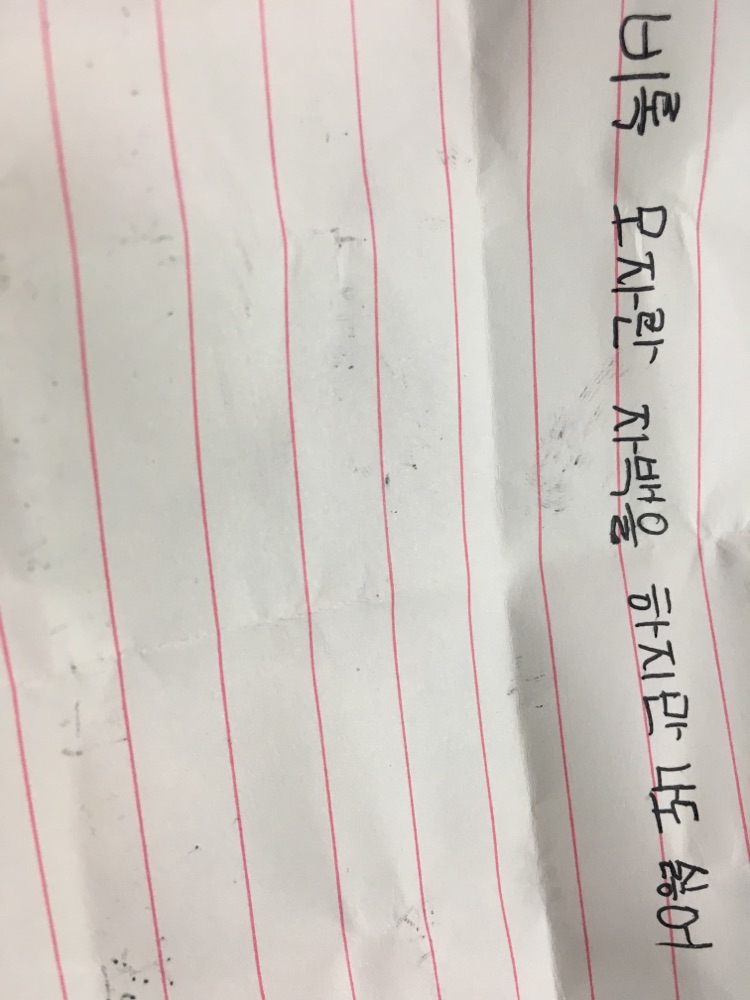 비록 모자란 자백을 하지만 나도 싫어